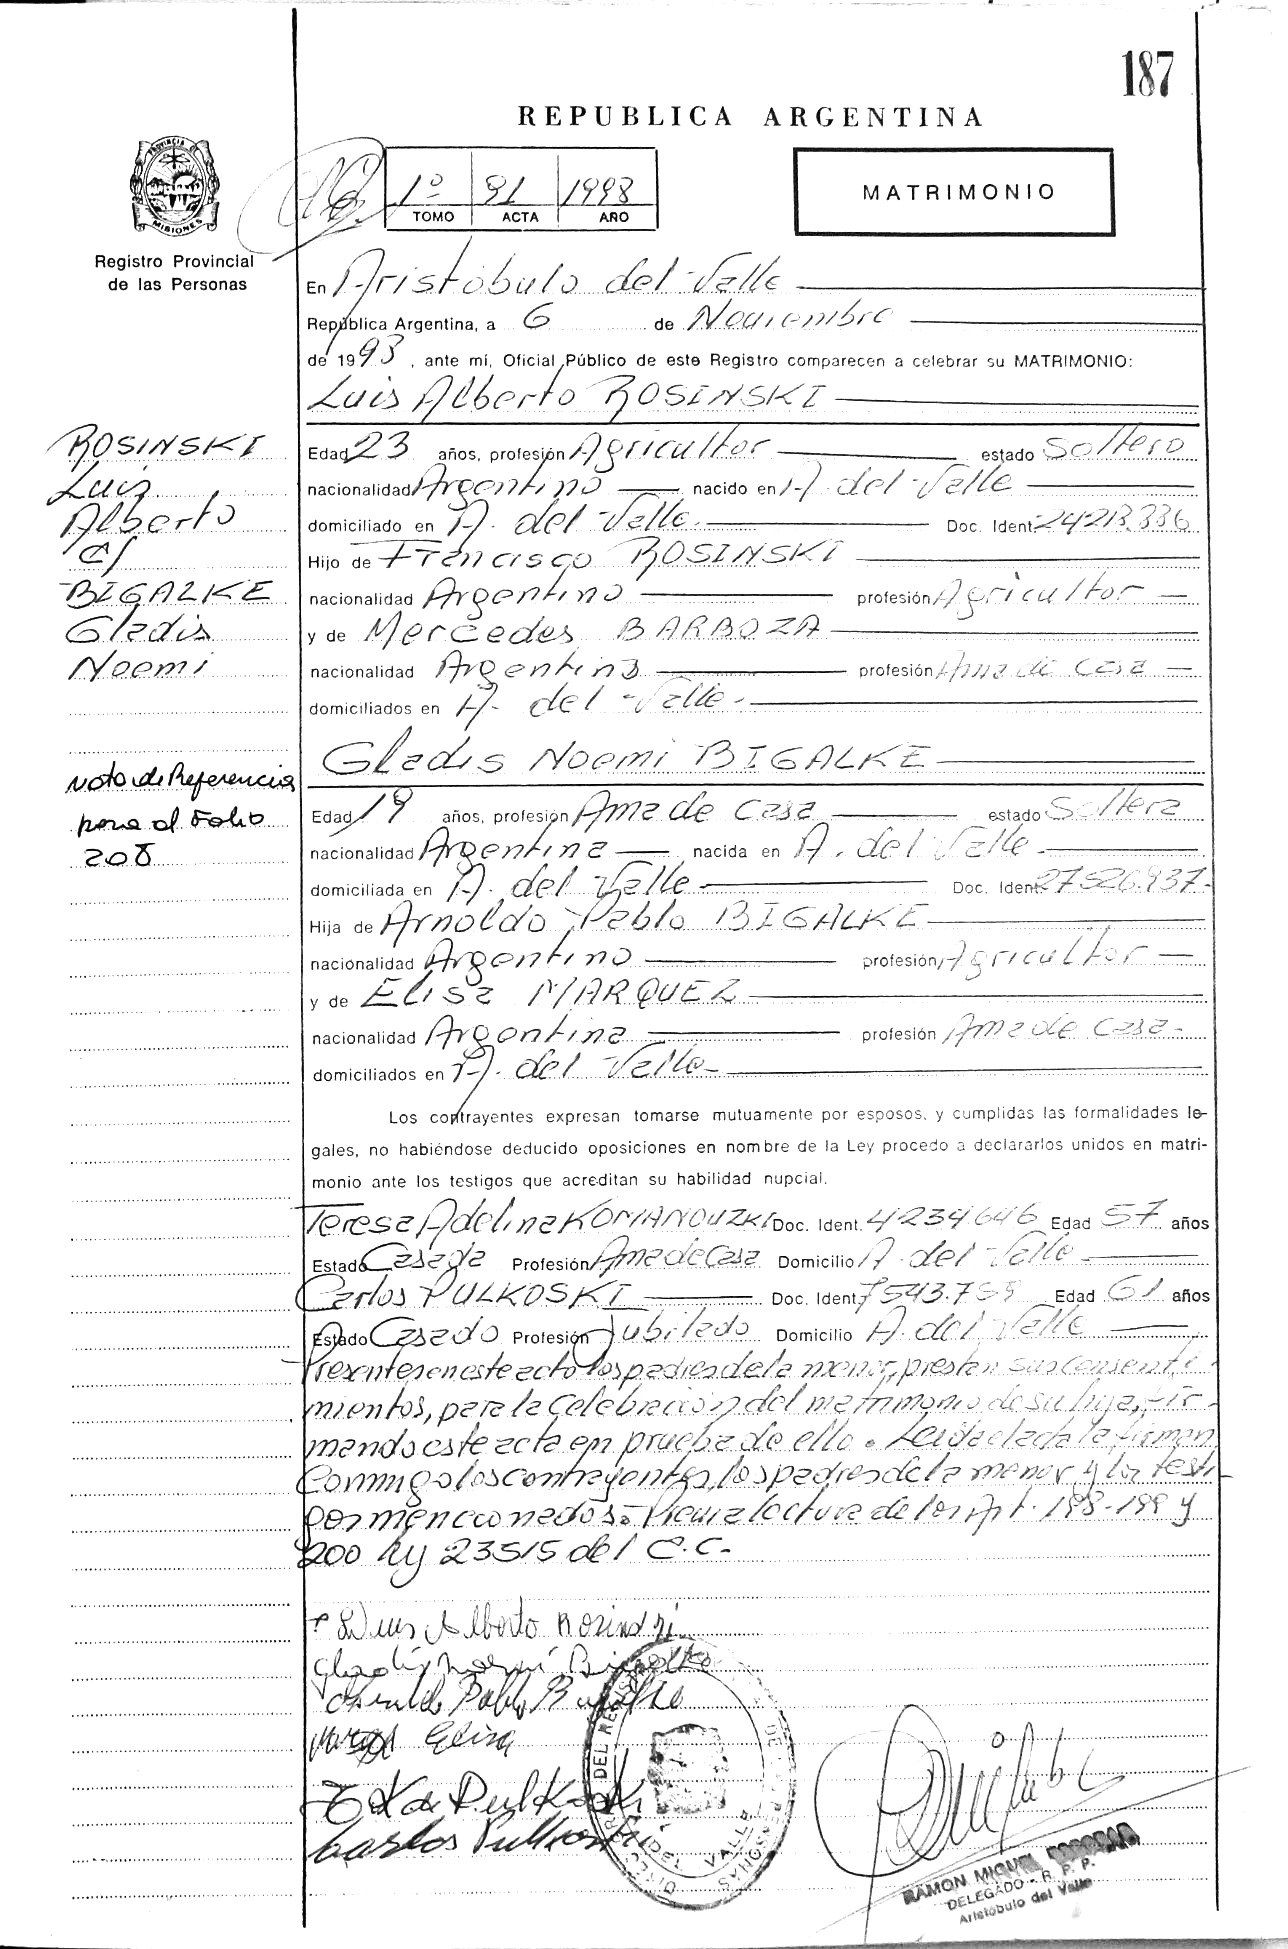 187
REPUBLICA ARGENTINA
PROVINCIA DE
MISIONES
Registro Provincial
de las Personas
1º 91 1998
TOMO ACTA AÑO
MATRIMONIO
En Aristóbulo del Valle
República Argentina, a 6 de Noviembre
de 1993, ante mi, Oficial Público de este Registro comparecen a celebrar su MATRIMONIO:
Luis Alberto ROSINSKI
ROSINSKI
Luis
Alberto
C/
BIGALKE
Gladis
Noemi
Nota de Referencia
para el Folio
208
Edad 23 años, profesión Agricultor estado Soltero
nacionalidad Argentino nacido en A. del Valle
domiciliado en A. del Valle. Doc. Ident. 24213.336
Hijo de Francisco ROSINSKI
nacionalidad Argentino profesión Agricultor
y de Mercedes BARBOZA
nacionalidad Argentina profesión Ama de Casa
domiciliados en A. del Valle.
Gladis Noemi BIGALKE
Edad 19 años, profesión Ama de Casa estado Soltera
nacionalidad Argentina nacida en A. del Valle.
domiciliada en A. del Valle Doc. Ident. 27526.937.
Hija de Arnoldo Pablo BIGALKE
nacionalidad Argentino profesión Agricultor
y de Elisa MARQUEZ
nacionalidad Argentina profesión Ama de Casa.
domiciliados en A. del Valle
Los contrayentes expresan tomarse mutuamente por esposos, y cumplidas las formalidades le-
gales, no habiéndose deducido oposiciones en nombre de la Ley procedo a declararlos unidos en matri-
monio ante los testigos que acreditan su habilidad nupcial.
Teresa Adelina KOMANOUZKI Doc. Ident. 4234646 Edad 57 años
Estado Casada Profesión Ama de Casa Domicilio A. del Valle
Carlos PULKOSKI Doc. Ident. 7543.759 Edad 61 años
Estado Casado Profesión Jubilado Domicilio A. del Valle
Presentes en este acto los padres de la menor, prestan sus consenti
mientos, para la Celebración del matrimonio de su hija, fir-
mando este acta en prueba de ello. Leida el acta la firman
Conmigo los contrayentes, los padres de la menor y los testi
gos mencionados. Previa lectura de los Art. 198-199 y
200 ley 23515 del C.C.
Luis Alberto Rosinski
Gladis Noemí Bigalke
Arnoldo Pablo Bigalke
Elisa
T K de Pulkoski
Carlos Pulkoski
DEL REGISTRO
DE LAS PERSONAS
DEL VALLE
RAMON MIGUEL
DELEGADO - R. P. P.
Aristóbulo del Valle